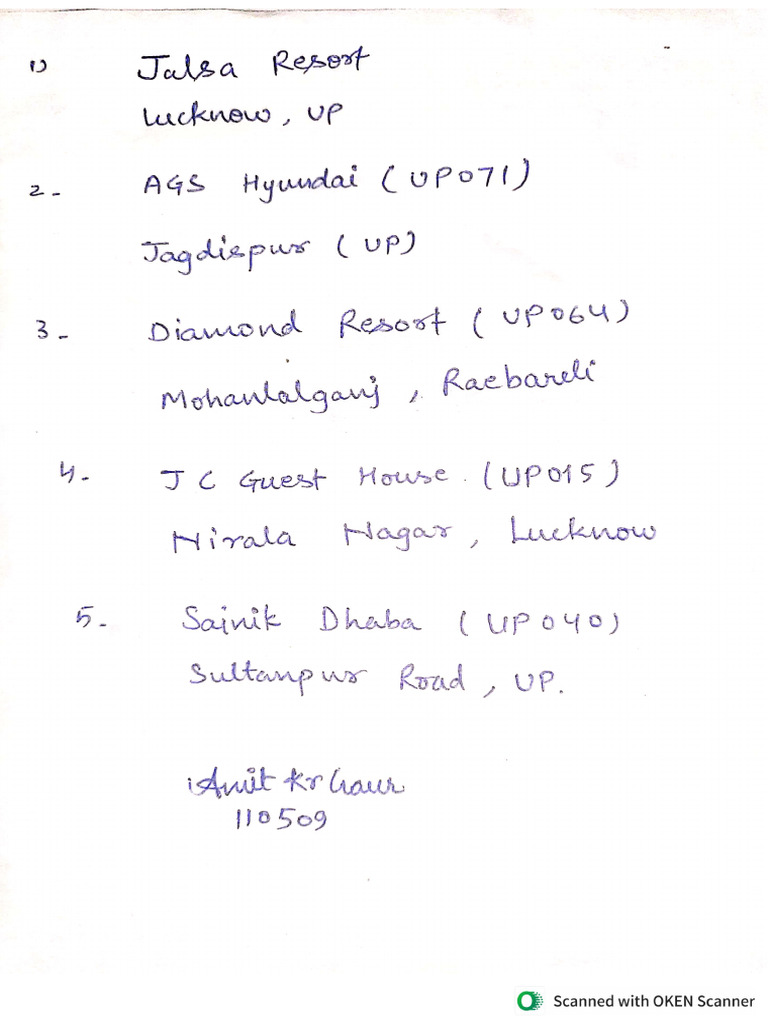 1) Jalsa Resort
Lucknow, UP
2- AGS Hyundai (UP071)
Jagdispur (UP)
3- Diamond Resort (UP064)
Mohanlalganj, Raebareli
4- J C Guest House (UP015)
Nirala Nagar, Lucknow
5- Sainik Dhaba (UP040)
Sultanpur Road, UP.
Amit Kr Gaur
110509
Scanned with OKEN Scanner